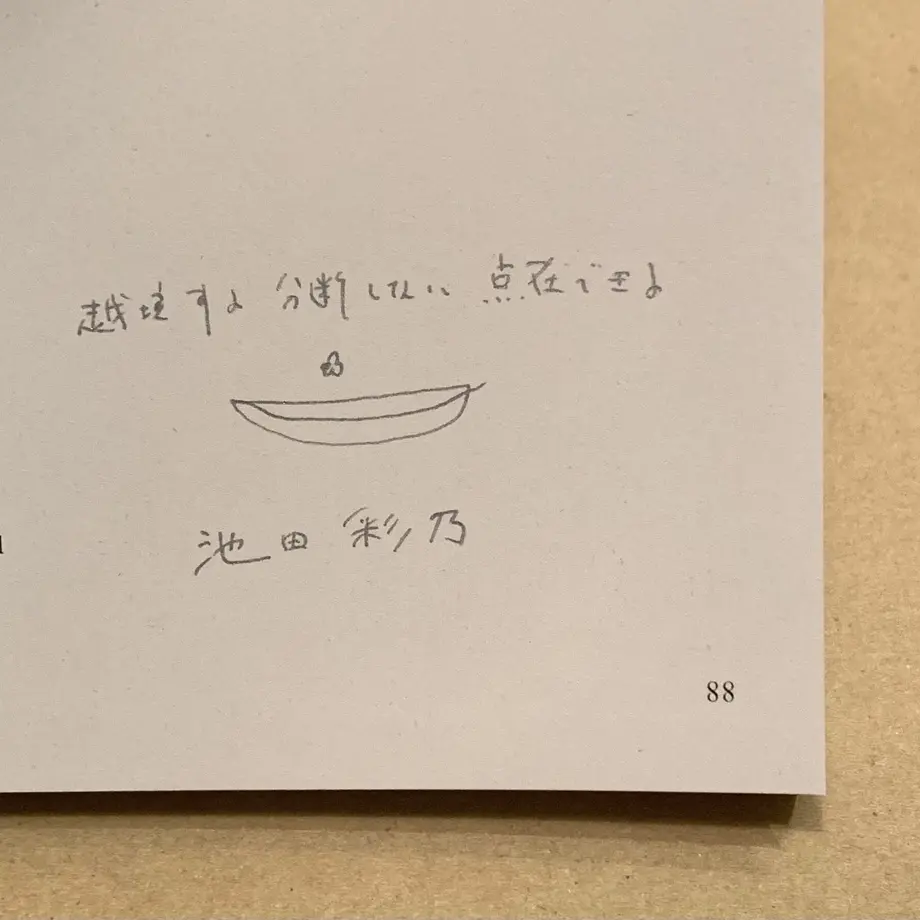 越境する 分断しない 点在できる
池田 彩乃
88